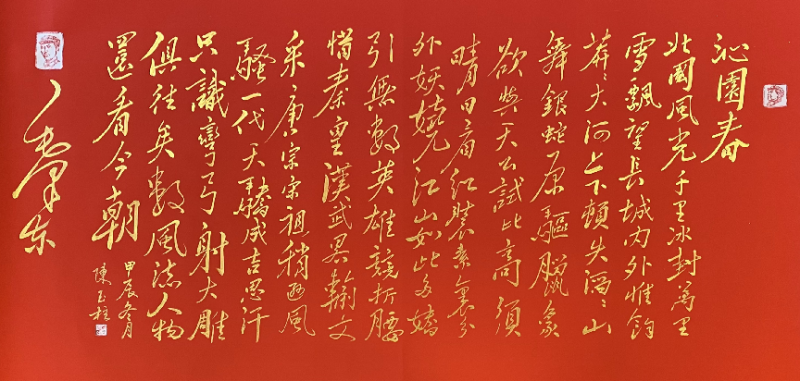 沁園春
北國風光千里冰封萬里
雪飄望長城內外惟餘
莽〻大河上下頓失滔〻山
舞銀蛇原驅臘象
欲與天公試比高須
晴日看紅裝素裹分
外妖嬈江山如此多嬌
引無數英雄競折腰
惜秦皇漢武略輸文
采唐宗宋祖稍遜風
騷一代天驕成吉思汗
只識彎弓射大雕
俱往矣數風流人物
還看今朝
甲辰冬月
陳玉柱
毛澤東